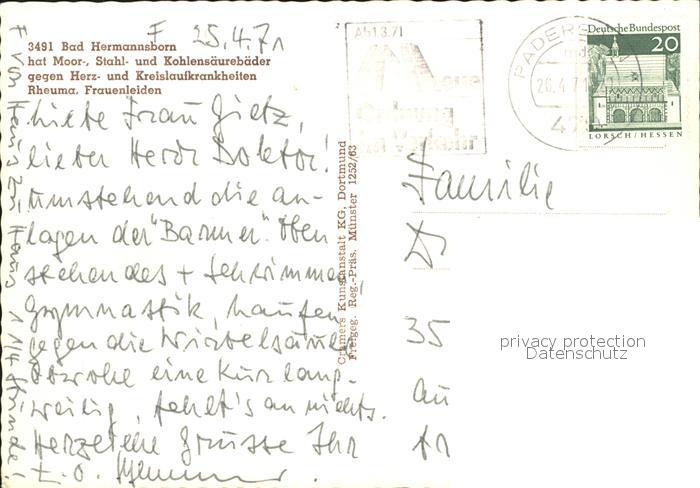 F 25.4.71
3491 Bad Hermannsborn
hat Moor-, Stahl- und Kohlensäurebäder
gegen Herz- und Kreislaufkrankheiten
Rheuma, Frauenleiden
Liebe Frau Gietz,
lieber Herr Doktor!
Umstehend die An-
lagen der "Barmer". Oben
stehendes + Schwimmen
Gymnastik, haufen
gegen die Wirbelsäule
Obwohl eine Kur lang-
weilig, fehlt's an nichts.
Herzliche Grüsse Ihr
Cramers Kunstanstalt KG, Dortmund
Freigeg. Reg.-Präs. Münster 1252/63
Ab 1.3.71
Neue
Ordnung
im Verkehr
PADERBORN
26.4.71
Deutsche Bundespost
20
LORSCH/HESSEN
Familie
D
35
privacy protection
Datenschutz